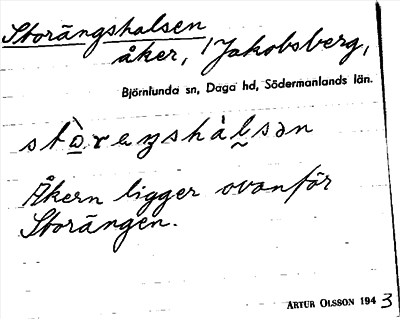 Storängshalsen
åker, Jakobsberg,
Björnlunda sn, Daga hd, Södermanlands län.
stò̱reŋshàl̰sən
Åkern ligger ovanför
Storängen.
ARTUR OLSSON 1943